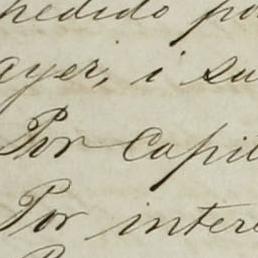 pedido po
ayer, i su
Por Capit
Por intere